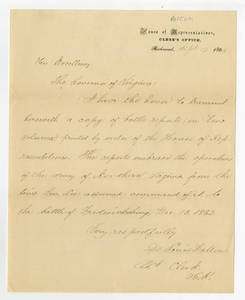 House of Representatives,
CLERK'S OFFICE,
Richmond, Sept 186
His Excellency
The Governor of Virginia
I have the honor to transmit
herewith a copy of battle reports in two
volumes printed by order of the House of Rep-
resentatives. The reports embrace the operations
of the army of Northern Virginia from the
time Gen. Lee assumed command of it to
the battle of Fredericksburg Dec. 13. 1862.
Very respectfully
Clerk